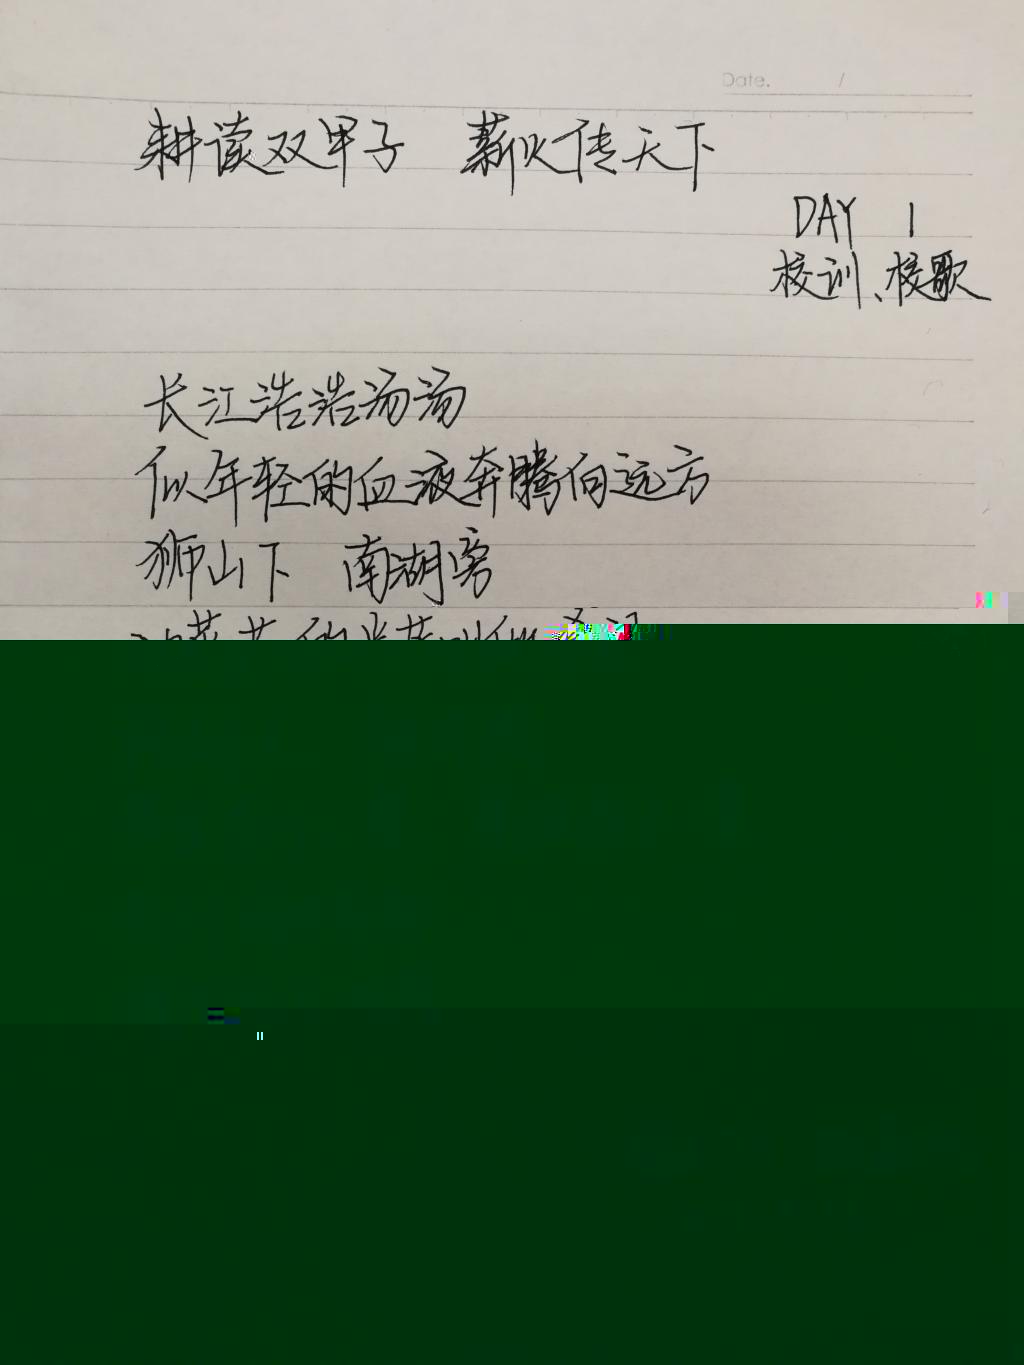 Date. /
耕读双甲子 薪火传天下
DAY 1
校训、校歌
长江浩浩汤汤
似年轻的血液奔腾向远方
狮山下 南湖旁